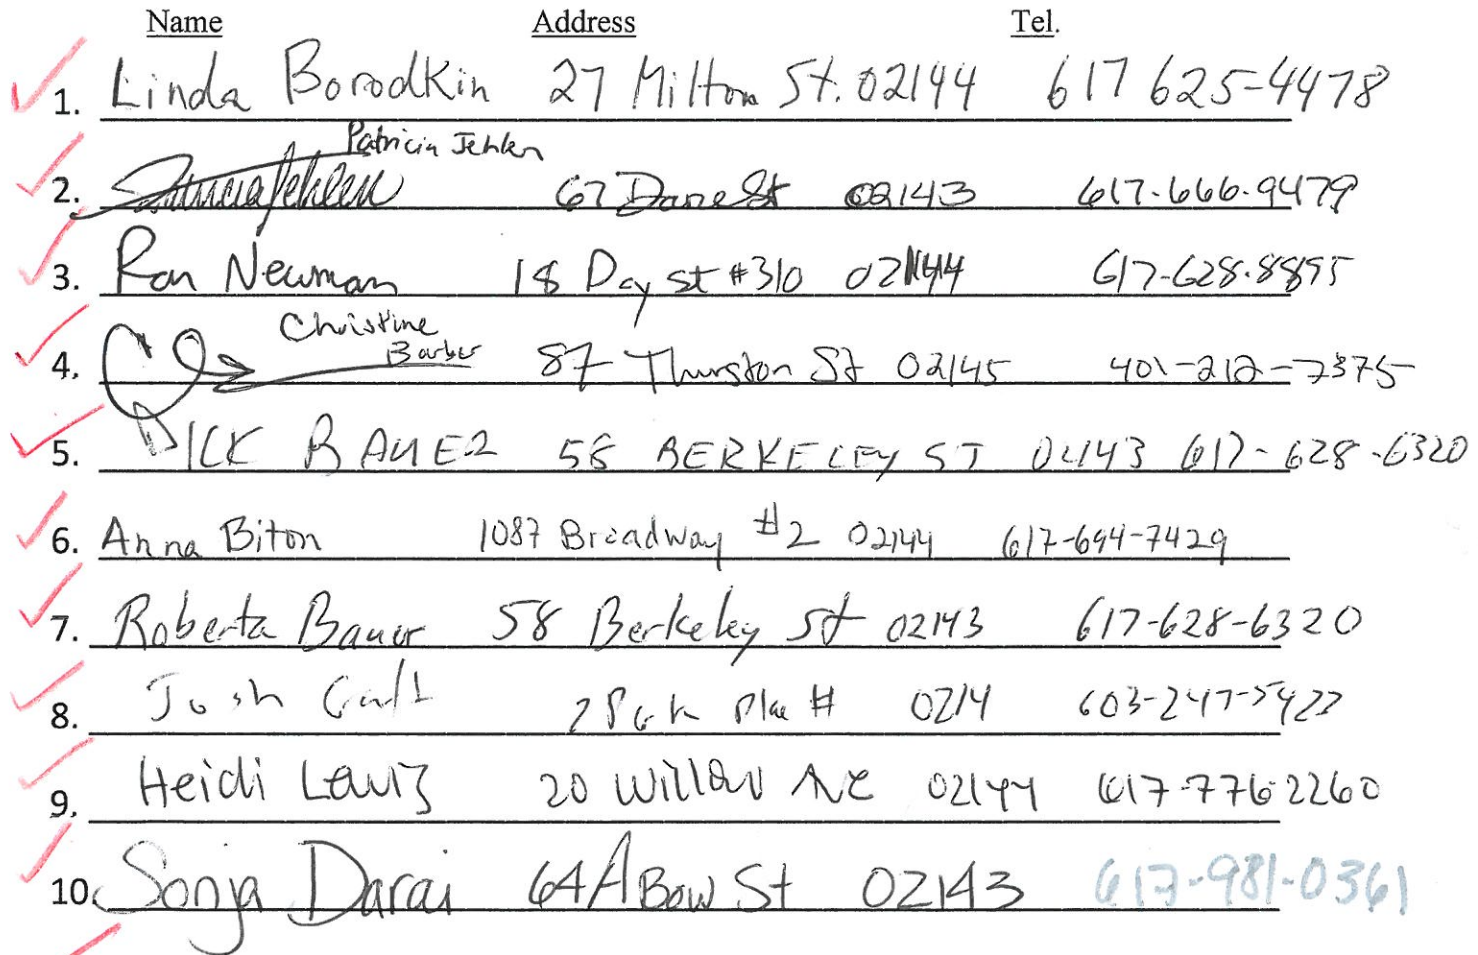 Name Address Tel.
1. Linda Borodkin 27 Milton St. 02144 617 625-4478
Patricia Jehlen
2. Patricia Jehlen 67 Dane St 02143 617-666-9479
3. Ron Newman 18 Day St #310 02144 617-628-8895
Christine
4. Barber 87 Thurston St 02145 401-212-7375
5. RICK BAUER 58 BERKELEY ST 02143 617-628-6320
6. Anna Biton 1087 Broadway #2 02144 617-694-7429
7. Roberta Bauer 58 Berkeley St 02143 617-628-6320
8. Josh 2 Park Place # 0214 603-247-5422
9. Heidi Lewis 20 Willow Ave 02144 617-776-2260
10. Sonja Darai 64A Bow St 02143 617-981-0361